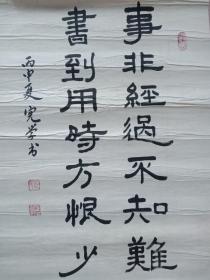 事非經過不知難
書到用時方恨少
丙申夏 完学书